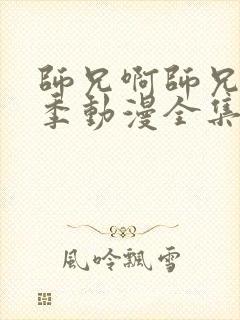 師兄啊師兄
季動漫全集
風吟飄雪